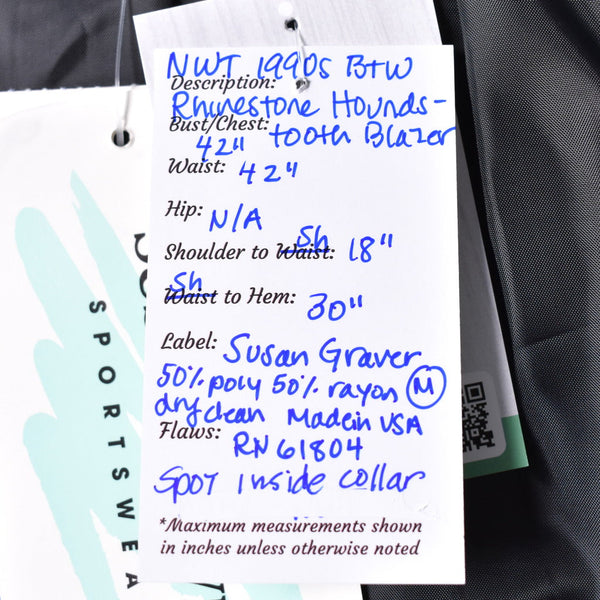 NWT 1990s B+W
Description:
Rhinestone Hounds-
Bust/Chest: tooth Blazer
42"
Waist: 42"
Hip: N/A
Shoulder to Waist: Sh 18"
Waist Sh to Hem: 30"
Label: Susan Graver
50% poly 50% rayon M
dry clean Made in USA
Flaws: RN 61804
Spot inside collar
*Maximum measurements shown
in inches unless otherwise noted
SPORTSWEA